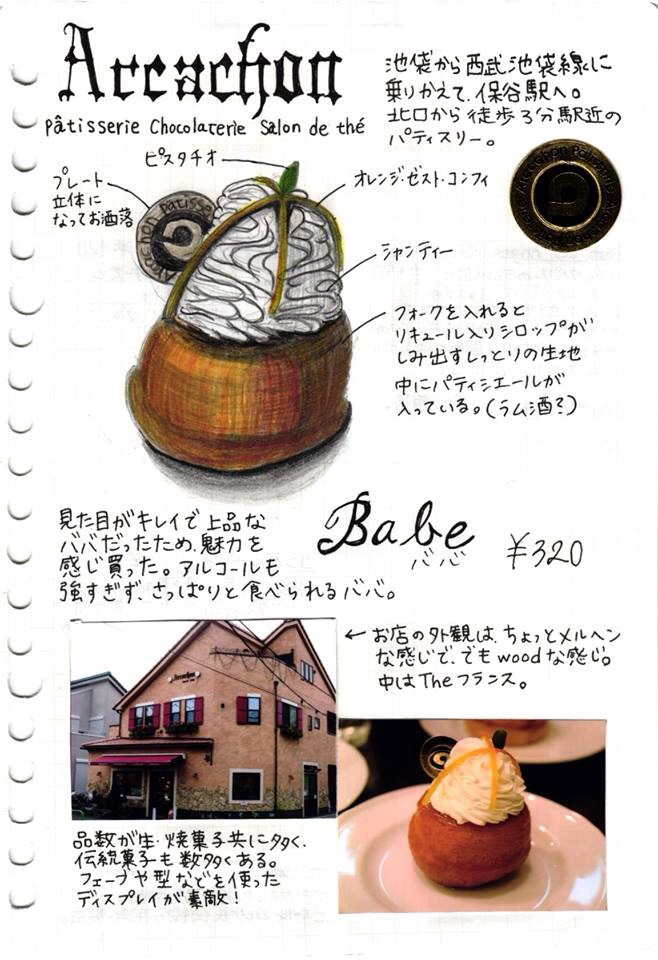 Arcachon
Pâtisserie Chocolaterie Salon de thé
池袋から西武池袋線に
乗りかえて、保谷駅へ。
北口から徒歩3分駅近の
パティスリー。
ピスタチオ
プレート
立体に
なってお洒落
オレンジ・ゼスト・コンフィ
シャンティー
フォークを入れると
リキュール入りシロップが
しみ出すしっとりの生地
中にパティシエールが
入っている。(ラム酒?)
Arcachon Patisse
Arcachon Patisserie
Babe
ババ
¥320
見た目がキレイで上品な
ババだったため、魅力を
感じ買った。アルコールも
強すぎず、さっぱりと食べられるババ。
← お店の外観は、ちょっとメルヘン
な感じで、でもwoodな感じ。
中はTheフランス。
Arcachon
品数が生・焼菓子共に多く、
伝統菓子も数多くある。
フェーブや型などを使った
ディスプレイが素敵!